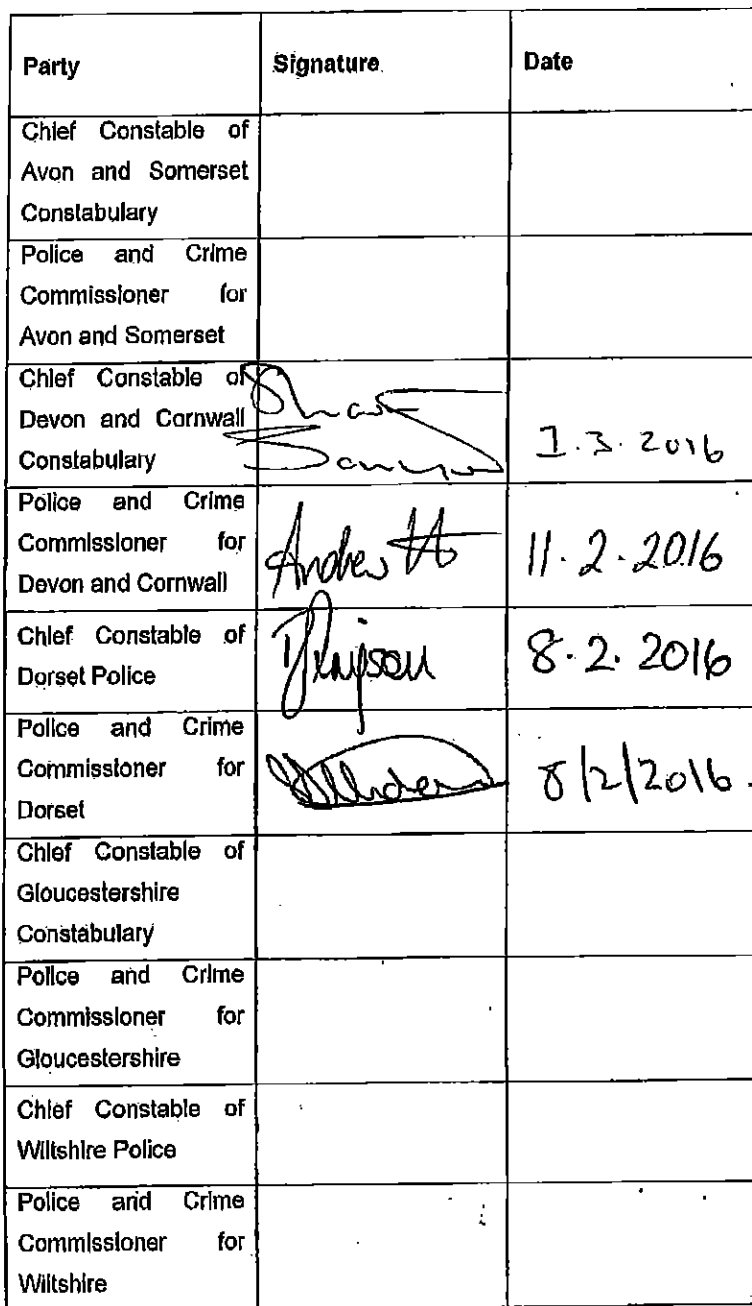 Party Signature Date
Chief Constable of
Avon and Somerset
Constabulary
Police and Crime
Commissioner for
Avon and Somerset
Chief Constable of
Devon and Cornwall
Constabulary
1.3.2016
Police and Crime
Commissioner for
Devon and Cornwall
Andrew
11.2.2016
Chief Constable of
Dorset Police
8.2.2016
Police and Crime
Commissioner for
Dorset
8/2/2016.
Chief Constable of
Gloucestershire
Constabulary
Police and Crime
Commissioner for
Gloucestershire
Chief Constable of
Wiltshire Police
Police and Crime
Commissioner for
Wiltshire